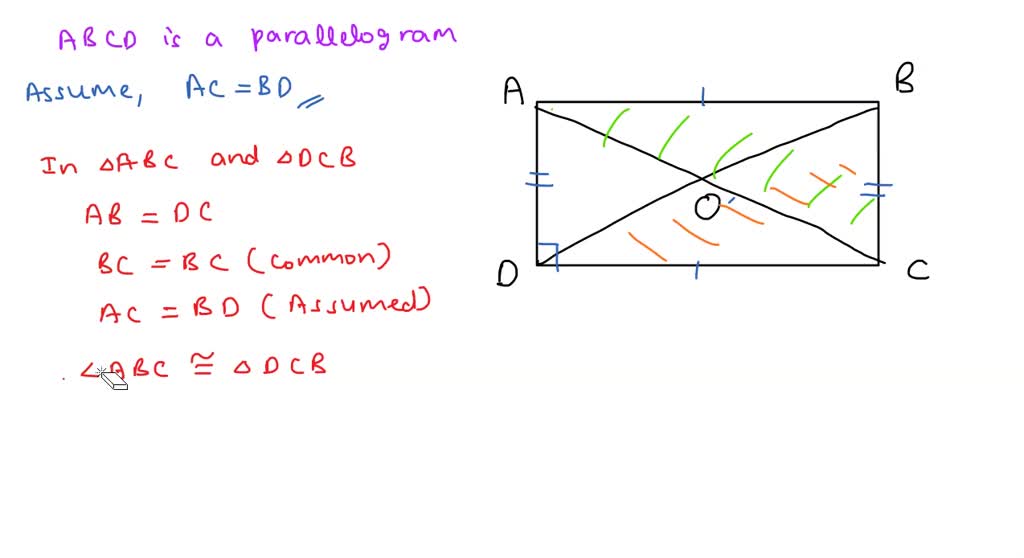 ABCD is a parallelogram
Assume, AC = BD
In △ABC and △DCB
AB = DC
BC = BC (common)
AC = BD (Assumed)
∠ABC ≅ △DCB
A
B
O
D
C